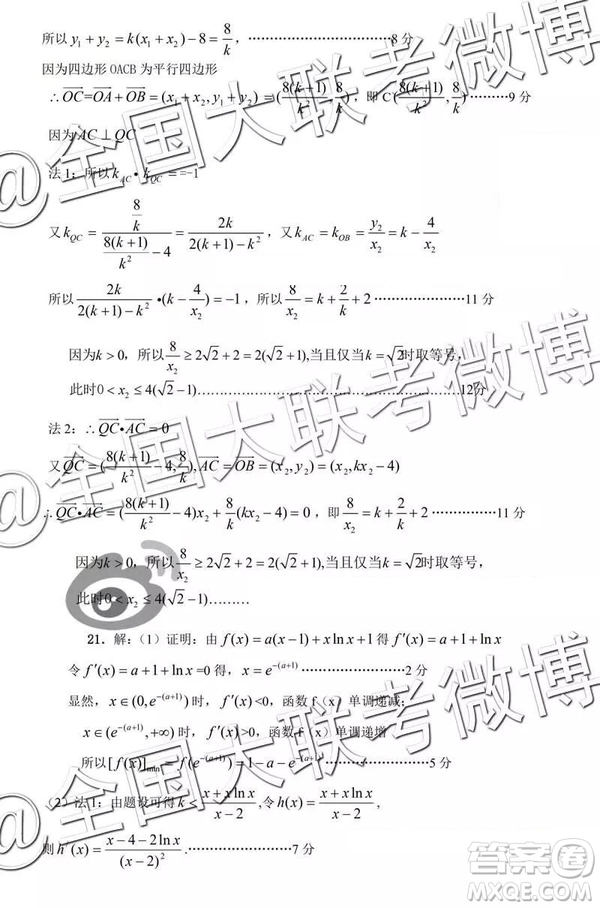 所以 y₁ + y₂ = k(x₁ + x₂) − 8 = 8/k，……………………………8 分
因为四边形 OACB 为平行四边形
∴ OC = OA + OB = (x₁ + x₂, y₁ + y₂) = (8(k+1)/k², 8/k)，即 C(8(k+1)/k², 8/k)………9 分
因为 AC ⊥ QC
法 1：所以 k_AC • k_QC = =−1
又 k_QC = (8/k)/(8(k+1)/k² − 4) = 2k/(2(k+1) − k²)，又 k_AC = k_OB = y₂/x₂ = k − 4/x₂
所以 2k/(2(k+1) − k²) •(k − 4/x₂) = −1，所以 8/x₂ = k + 2/k + 2…………………11 分
因为 k > 0，所以 8/x₂ ≥ 2√2 + 2 = 2(√2 + 1),当且仅当 k = √2时取等号，
此时0 < x₂ ≤ 4(√2 − 1)……………………………………12分
法 2：∴ QC • AC = 0
又 QC = (8(k+1)/k² − 4, 8/k), AC = OB = (x₂, y₂) = (x₂, kx₂ − 4)
∴ QC • AC = (8(k+1)/k² − 4)x₂ + 8/k (kx₂ − 4) = 0，即 8/x₂ = k + 2/k + 2……………11 分
因为 k > 0，所以 8/x₂ ≥ 2√2 + 2 = 2(√2 + 1),当且仅当 k = √2时取等号，
此时0 < x₂ ≤ 4(√2 − 1)………
21．解：（1）证明：由 f(x) = a(x − 1) + x ln x 得 f′(x) = a + 1 + ln x
令 f′(x) = a + 1 + ln x =0 得，x = e^−(a+1) ……………………2 分
显然，x ∈ (0, e^−(a+1)) 时，f′(x) <0，函数 f（x）单调递减；
x ∈ (e^−(a+1), +∞) 时，f′(x) >0，函数 f（x）单调递增
所以[f(x)]min = f(e^−(a+1)) = 1 − a − e^−(a+1) ……………………5 分
（2）法 1：由题设可得 k < (x + x ln x)/(x − 2),令 h(x) = (x + x ln x)/(x − 2)，
则 h′(x) = (x − 4 − 2 ln x)/(x − 2)² .……………………7 分
@全国大联考微博
@全国大联考微博
@全国大联考微博
答案圈
MXQE.COM